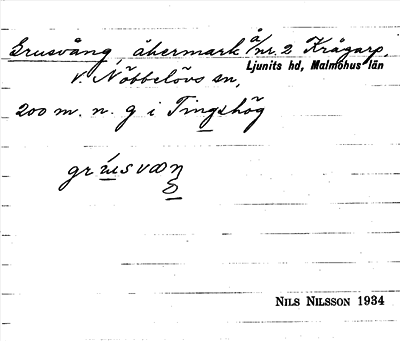 Grusvång, åkermark å nr. 2 Krågarp,
Ljunits hd, Malmöhus län
V. Nöbbelövs sn,
200 m. n. g i Tingshög
NILS NILSSON 1934